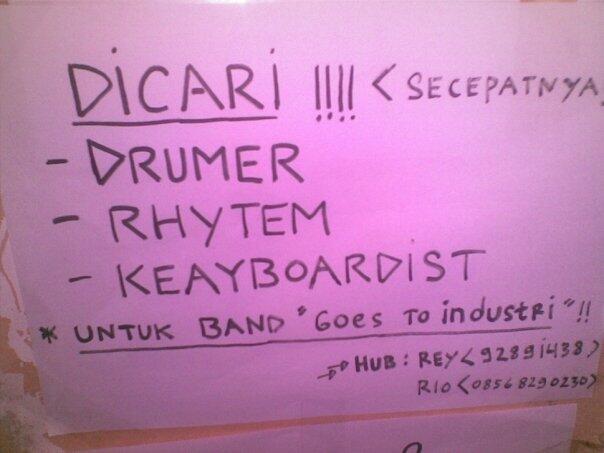 DICARI !!!! < SECEPATNYA
- DRUMER
- RHYTEM
- KEAYBOARDIST
* UNTUK BAND "GOES TO industri" !!
HUB : REY < 92891438 >
RIO < 08568290230 >